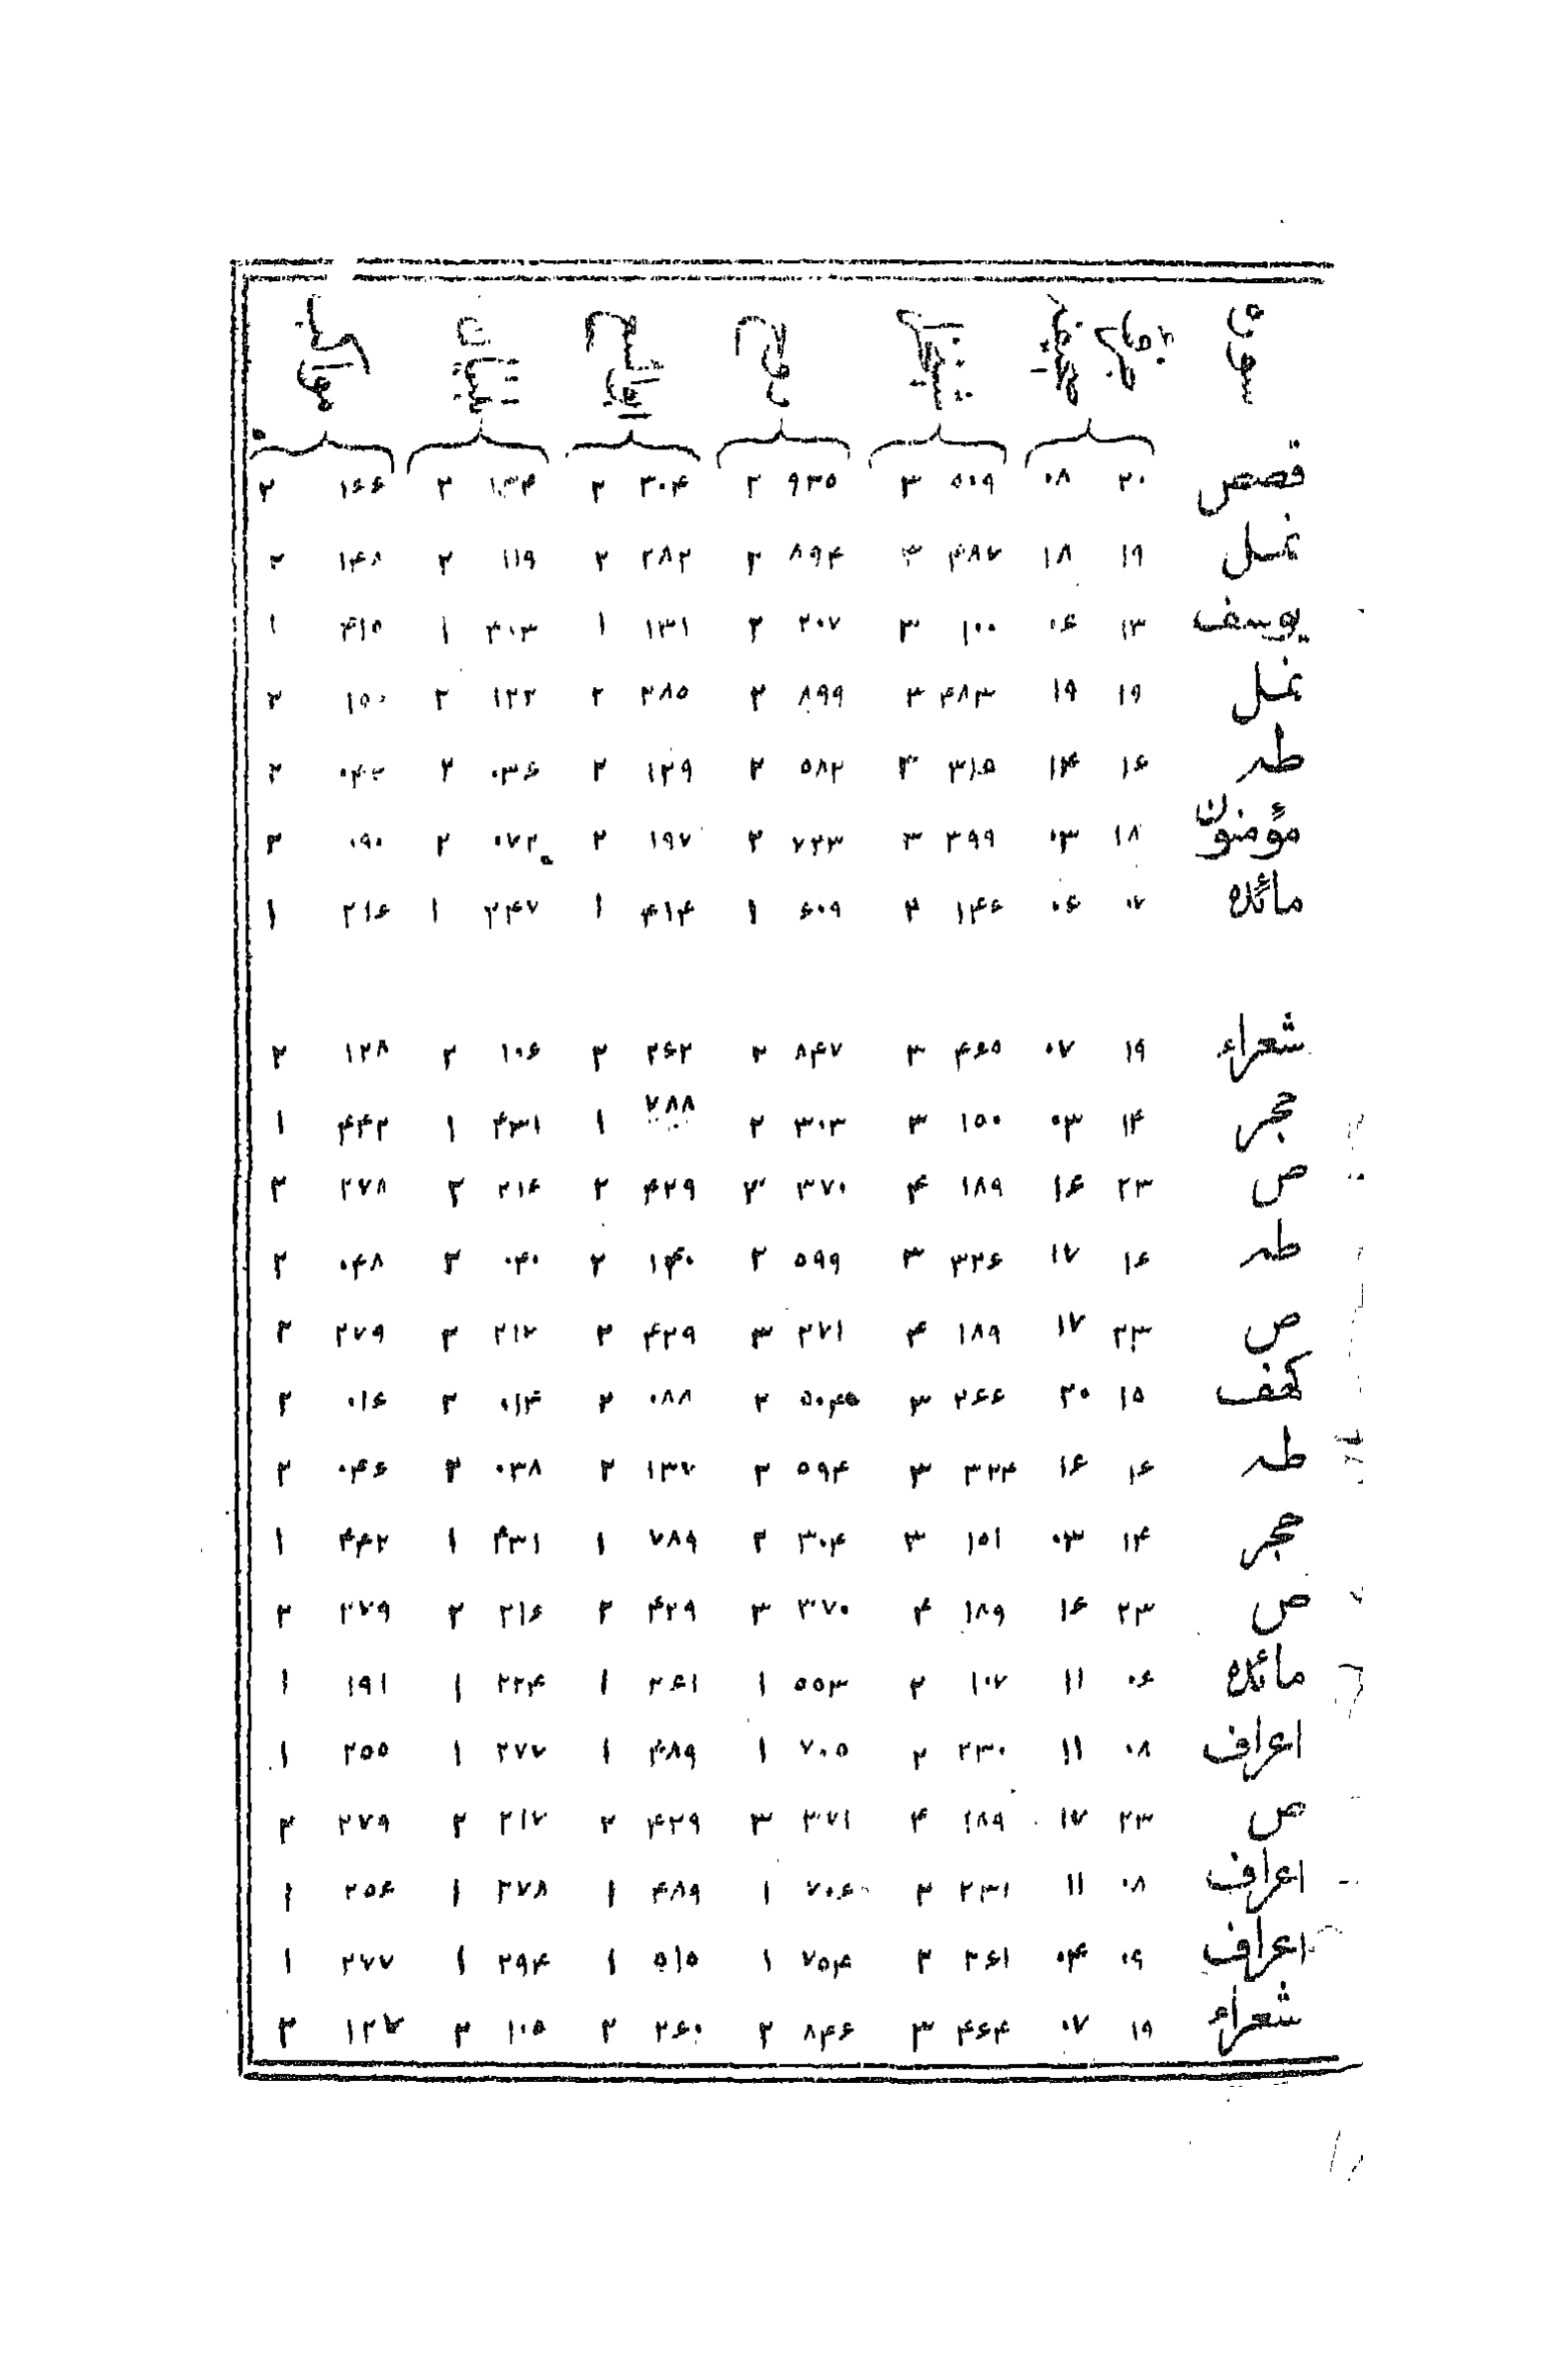 سورة
قصص ۲۰ ۰۸ ۵۰۹ ۳ ۹۳۵ ۲ ۳۰۴ ۲ ۱۳۴ ۲ ۱۶۶ ۲
نمل ۱۹ ۱۸ ۴۸۷ ۳ ۸۹۴ ۲ ۲۸۲ ۲ ۱۱۹ ۲ ۱۴۸ ۲
یوسف ۱۳ ۰۶ ۱۰۰ ۳ ۲۰۷ ۲ ۱۳۱ ۱ ۴۰۳ ۱ ۴۱۵ ۱
نمل ۱۹ ۱۹ ۴۸۳ ۳ ۸۹۹ ۲ ۲۸۵ ۲ ۱۲۲ ۲ ۱۵۰ ۲
طه ۱۶ ۱۴ ۳۱۵ ۳ ۵۸۲ ۲ ۱۲۹ ۲ ۰۳۶ ۲ ۰۴۳ ۲
مؤمنون ۱۸ ۰۳ ۳۹۹ ۳ ۷۲۳ ۲ ۱۹۷ ۲ ۰۷۲ ۲ ۰۹۰ ۲
مائده ۰۷ ۰۶ ۱۴۶ ۲ ۶۰۹ ۱ ۴۱۴ ۱ ۲۴۷ ۱ ۲۱۶ ۱
شعراء ۱۹ ۰۷ ۴۶۵ ۳ ۸۴۷ ۲ ۲۶۲ ۲ ۱۰۶ ۲ ۱۲۸ ۲
حجر ۱۴ ۰۳ ۱۵۰ ۳ ۳۰۳ ۲ ۷۸۸ ۱ ۴۳۱ ۱ ۴۴۲ ۱
ص ۲۳ ۱۶ ۱۸۹ ۴ ۳۷۰ ۳ ۴۲۹ ۲ ۲۱۶ ۲ ۲۷۸ ۲
طه ۱۶ ۱۷ ۳۲۶ ۳ ۵۹۹ ۲ ۱۴۰ ۲ ۰۴۰ ۲ ۰۴۸ ۲
ص ۲۳ ۱۷ ۱۸۹ ۴ ۲۷۱ ۳ ۴۲۹ ۲ ۲۱۷ ۲ ۲۷۹ ۲
کهف ۱۵ ۲۰ ۲۶۶ ۳ ۵۰۴ ۲ ۰۸۸ ۲ ۰۱۴ ۲ ۰۱۶ ۲
طه ۱۶ ۱۶ ۳۲۴ ۳ ۵۹۴ ۲ ۱۳۷ ۲ ۰۳۸ ۲ ۰۴۶ ۲
حجر ۱۴ ۰۳ ۱۵۱ ۳ ۳۰۴ ۲ ۷۸۹ ۱ ۴۳۱ ۱ ۴۴۲ ۱
ص ۲۳ ۱۶ ۱۸۹ ۴ ۳۷۰ ۳ ۴۲۹ ۲ ۲۱۶ ۲ ۲۷۹ ۲
مائده ۰۶ ۱۱ ۱۰۷ ۲ ۵۵۳ ۱ ۲۶۱ ۱ ۲۲۴ ۱ ۱۹۱ ۱
اعراف ۰۸ ۱۱ ۲۳۰ ۲ ۷۰۵ ۱ ۴۸۹ ۱ ۲۷۷ ۱ ۲۵۵ ۱
ص ۲۳ ۱۷ ۱۸۹ ۴ ۳۷۱ ۳ ۴۲۹ ۲ ۲۱۷ ۲ ۲۷۹ ۲
اعراف ۰۸ ۱۱ ۲۳۱ ۲ ۷۰۶ ۱ ۴۸۹ ۱ ۲۷۸ ۱ ۲۵۶ ۱
اعراف ۰۹ ۰۴ ۲۶۱ ۲ ۷۵۴ ۱ ۵۱۵ ۱ ۲۹۴ ۱ ۲۷۷ ۱
شعراء ۱۹ ۰۷ ۴۶۴ ۳ ۸۴۶ ۲ ۲۶۰ ۲ ۱۰۵ ۲ ۱۲۷ ۲